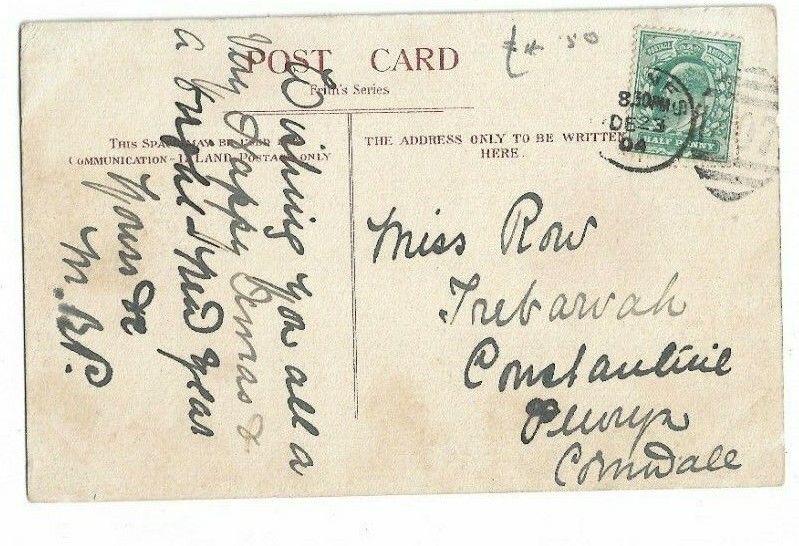 POST CARD
Frith's Series
THIS SPACE MAY BE USED
COMMUNICATION - INLAND POSTAGE ONLY
THE ADDRESS ONLY TO BE WRITTEN
HERE.
Wishing you all a
Very Happy Xmas &
a Bright New Year
Yours
M.B.P.
Miss Row
Trebarvah
Constantine
Penryn
Cornwall
£4.50
POSTAGE
HALF PENNY
8.30PM
DE 23
04